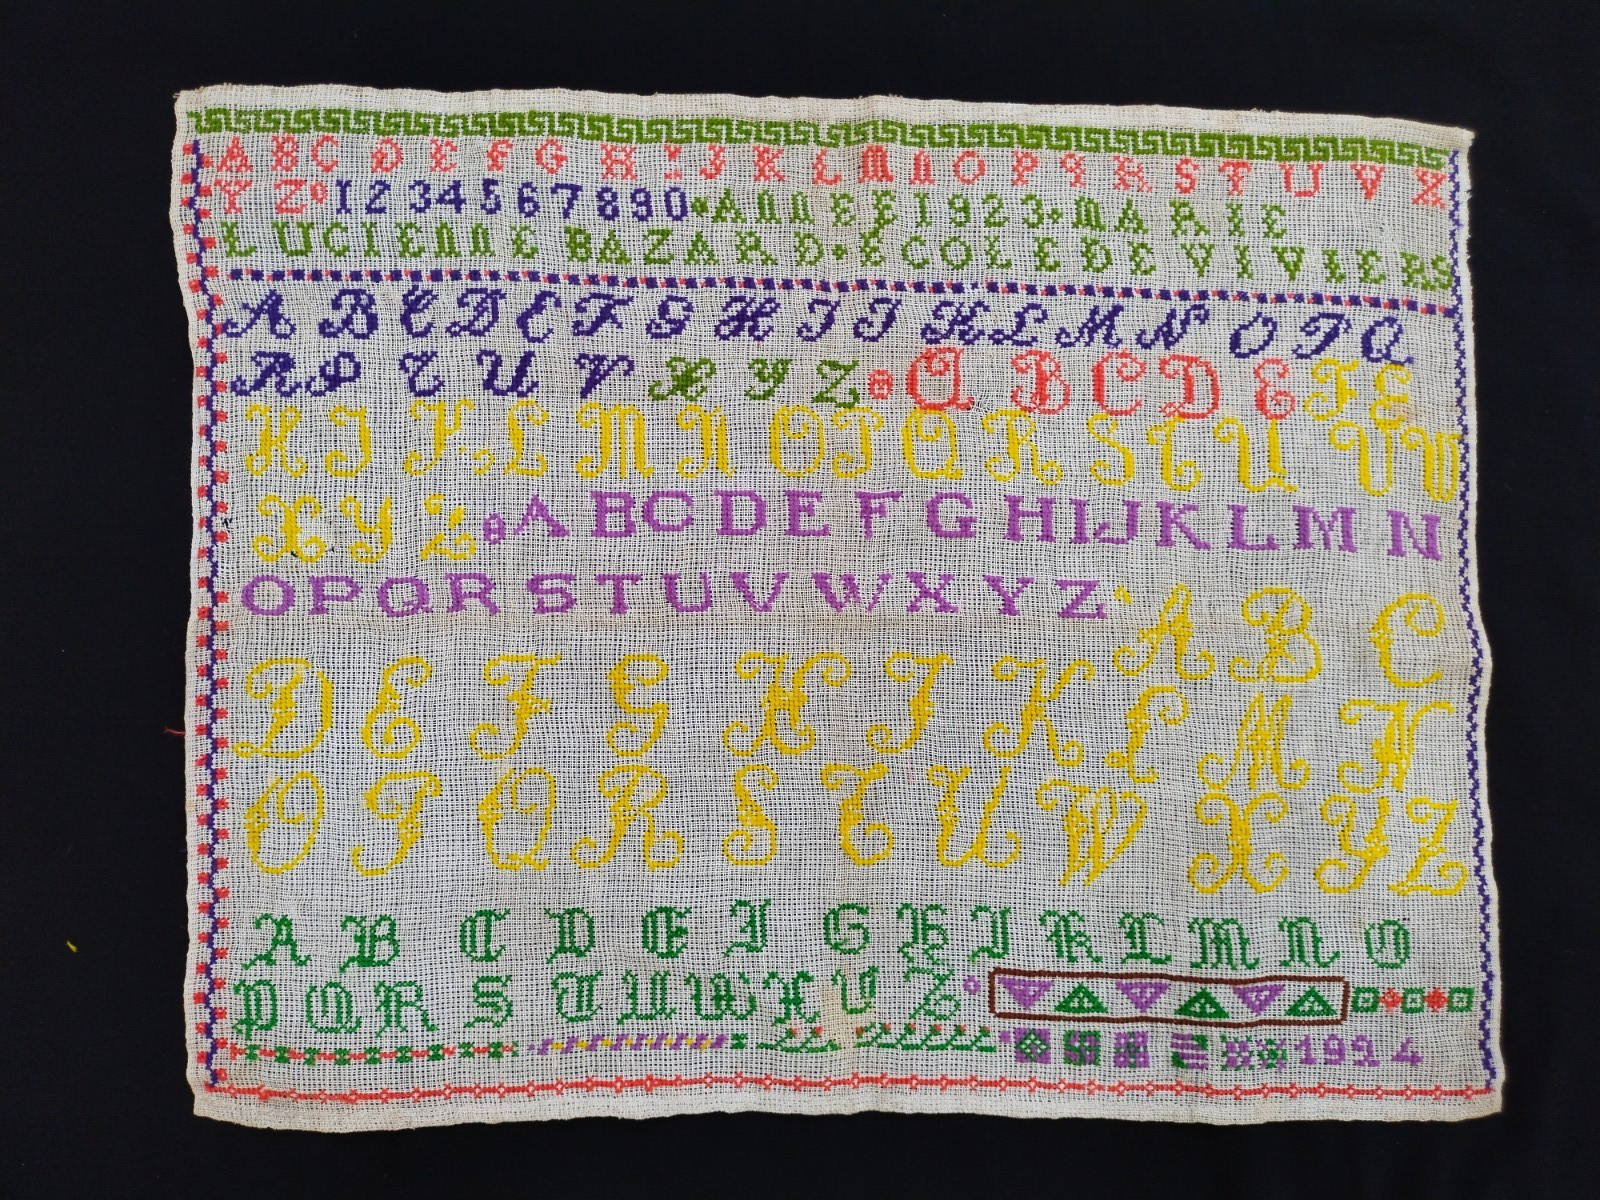 A B C D E F G H I J K L M N O P Q R S T U V X
Y Z 1234567890 ANNEE 1923 MARIE
LUCIENNE BAZARD ECOLE DE VIVIERS
A B C D E F G H I J K L M N O P Q
R S T U V X Y Z A B C D E F E
H I K L M N O P Q R S T U V W
X Y Z A B C D E F G H I J K L M N
O P Q R S T U V W X Y Z A B C
D E F G H I K L M N
O P Q R S T U W X Y Z
A B C D E I G H I K L M N O
P Q R S T U W X Y Z
1924